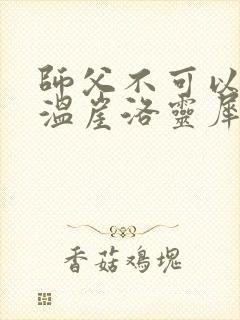 師父不可以
温崖洛靈犀
香菇鸡塊